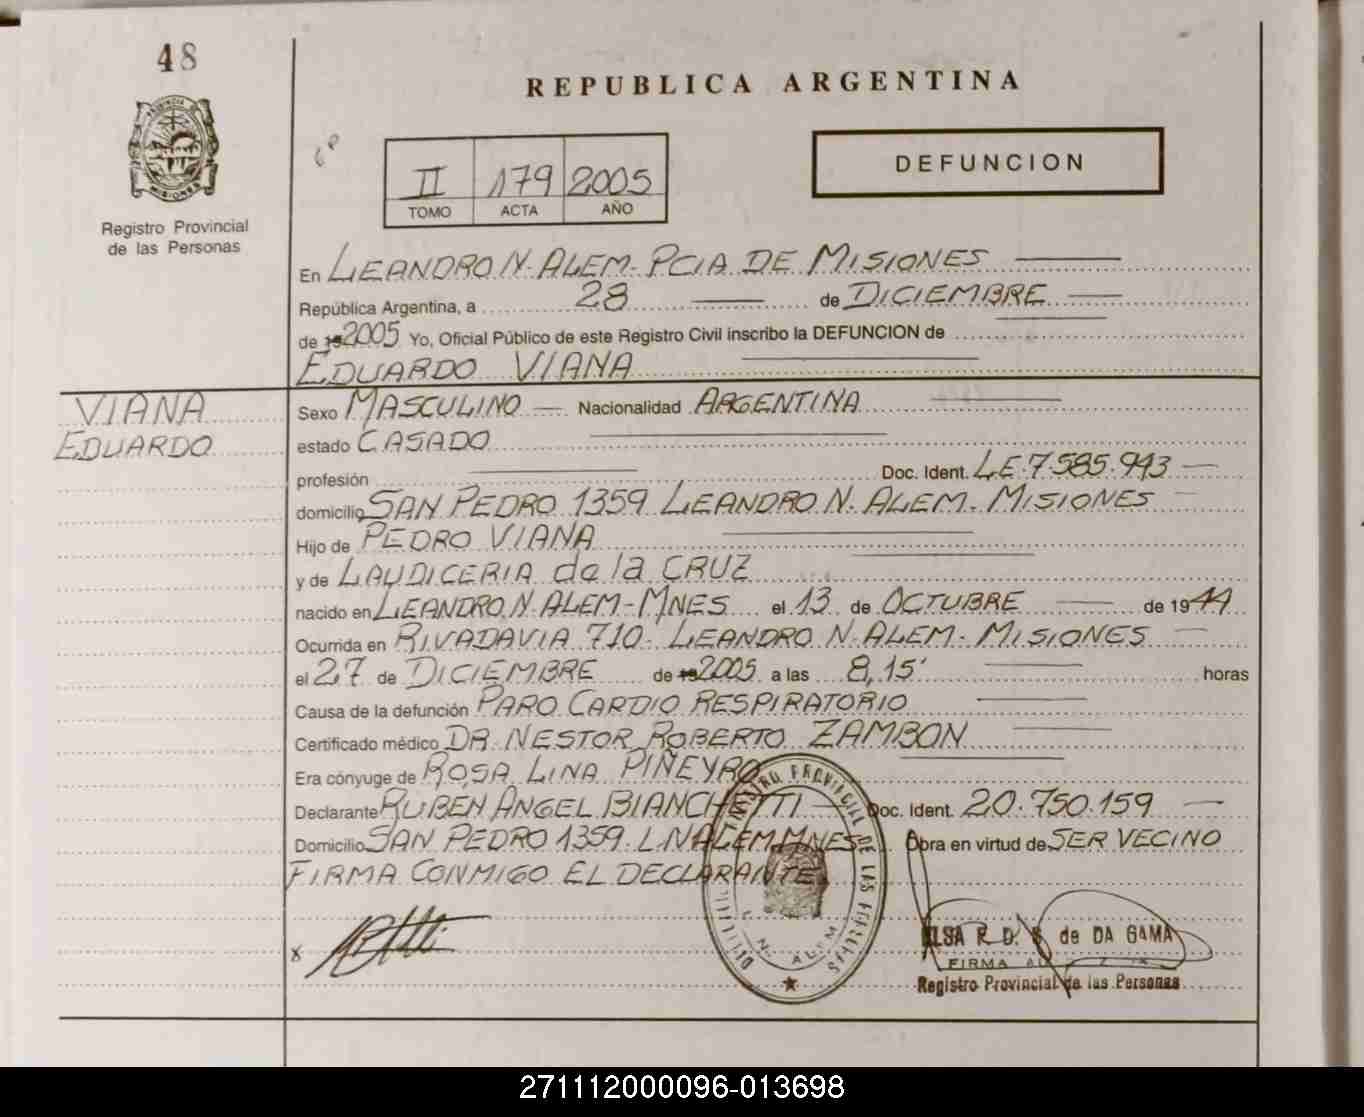 48
REPUBLICA ARGENTINA
PROVINCIA DE
MISIONES
Registro Provincial
de las Personas
II 179 2005
TOMO ACTA AÑO
DEFUNCION
En LEANDRO N. ALEM - PCIA DE MISIONES
República Argentina, a 28 de DICIEMBRE
de 19 2005 Yo, Oficial Público de este Registro Civil inscribo la DEFUNCION de
EDUARDO VIANA
VIANA
EDUARDO
Sexo MASCULINO — Nacionalidad ARGENTINA
estado CASADO
profesión Doc. Ident. LE. 7.585.943 —
domicilio SAN PEDRO 1359 LEANDRO N. ALEM - MISIONES
Hijo de PEDRO VIANA
y de LAUDICERIA de la CRUZ
nacido en LEANDRO N. ALEM - MNES el 13 de OCTUBRE — de 1944
Ocurrida en RIVADAVIA 710 - LEANDRO N. ALEM - MISIONES —
el 27 de DICIEMBRE de 19 2005 a las 8,15' horas
Causa de la defunción PARO CARDIO RESPIRATORIO
Certificado médico DR. NESTOR ROBERTO ZAMBON
Era cónyuge de ROSA LINA PIÑEYRO
Declarante RUBEN ANGEL BIANCHETTI — Doc. Ident. 20.750.159 —
Domicilio SAN PEDRO 1359. L.N.ALEM MNES Obra en virtud de SER VECINO
FIRMA CONMIGO EL DECLARANTE
REGISTRO PROVINCIAL DE LAS PERSONAS
L. N. ALEM
x
ELSA R. D. de DA GAMA
FIRMA
Registro Provincial de las Personas
271112000096-013698